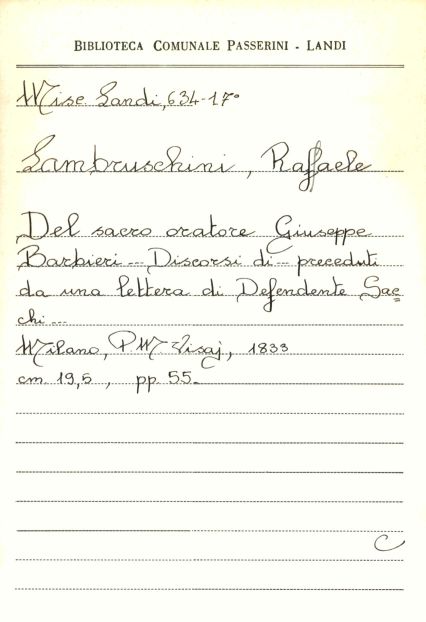 BIBLIOTECA COMUNALE PASSERINI - LANDI
Misc. Landi, 634-17°
Lambruschini, Raffaele
Del sacro oratore Giuseppe
Barbieri ... Discorsi di ... preceduti
da una lettera di Defendente Sac=
chi ...
Milano, P. M. Visaj, 1833
cm. 19,5, pp. 55.
C